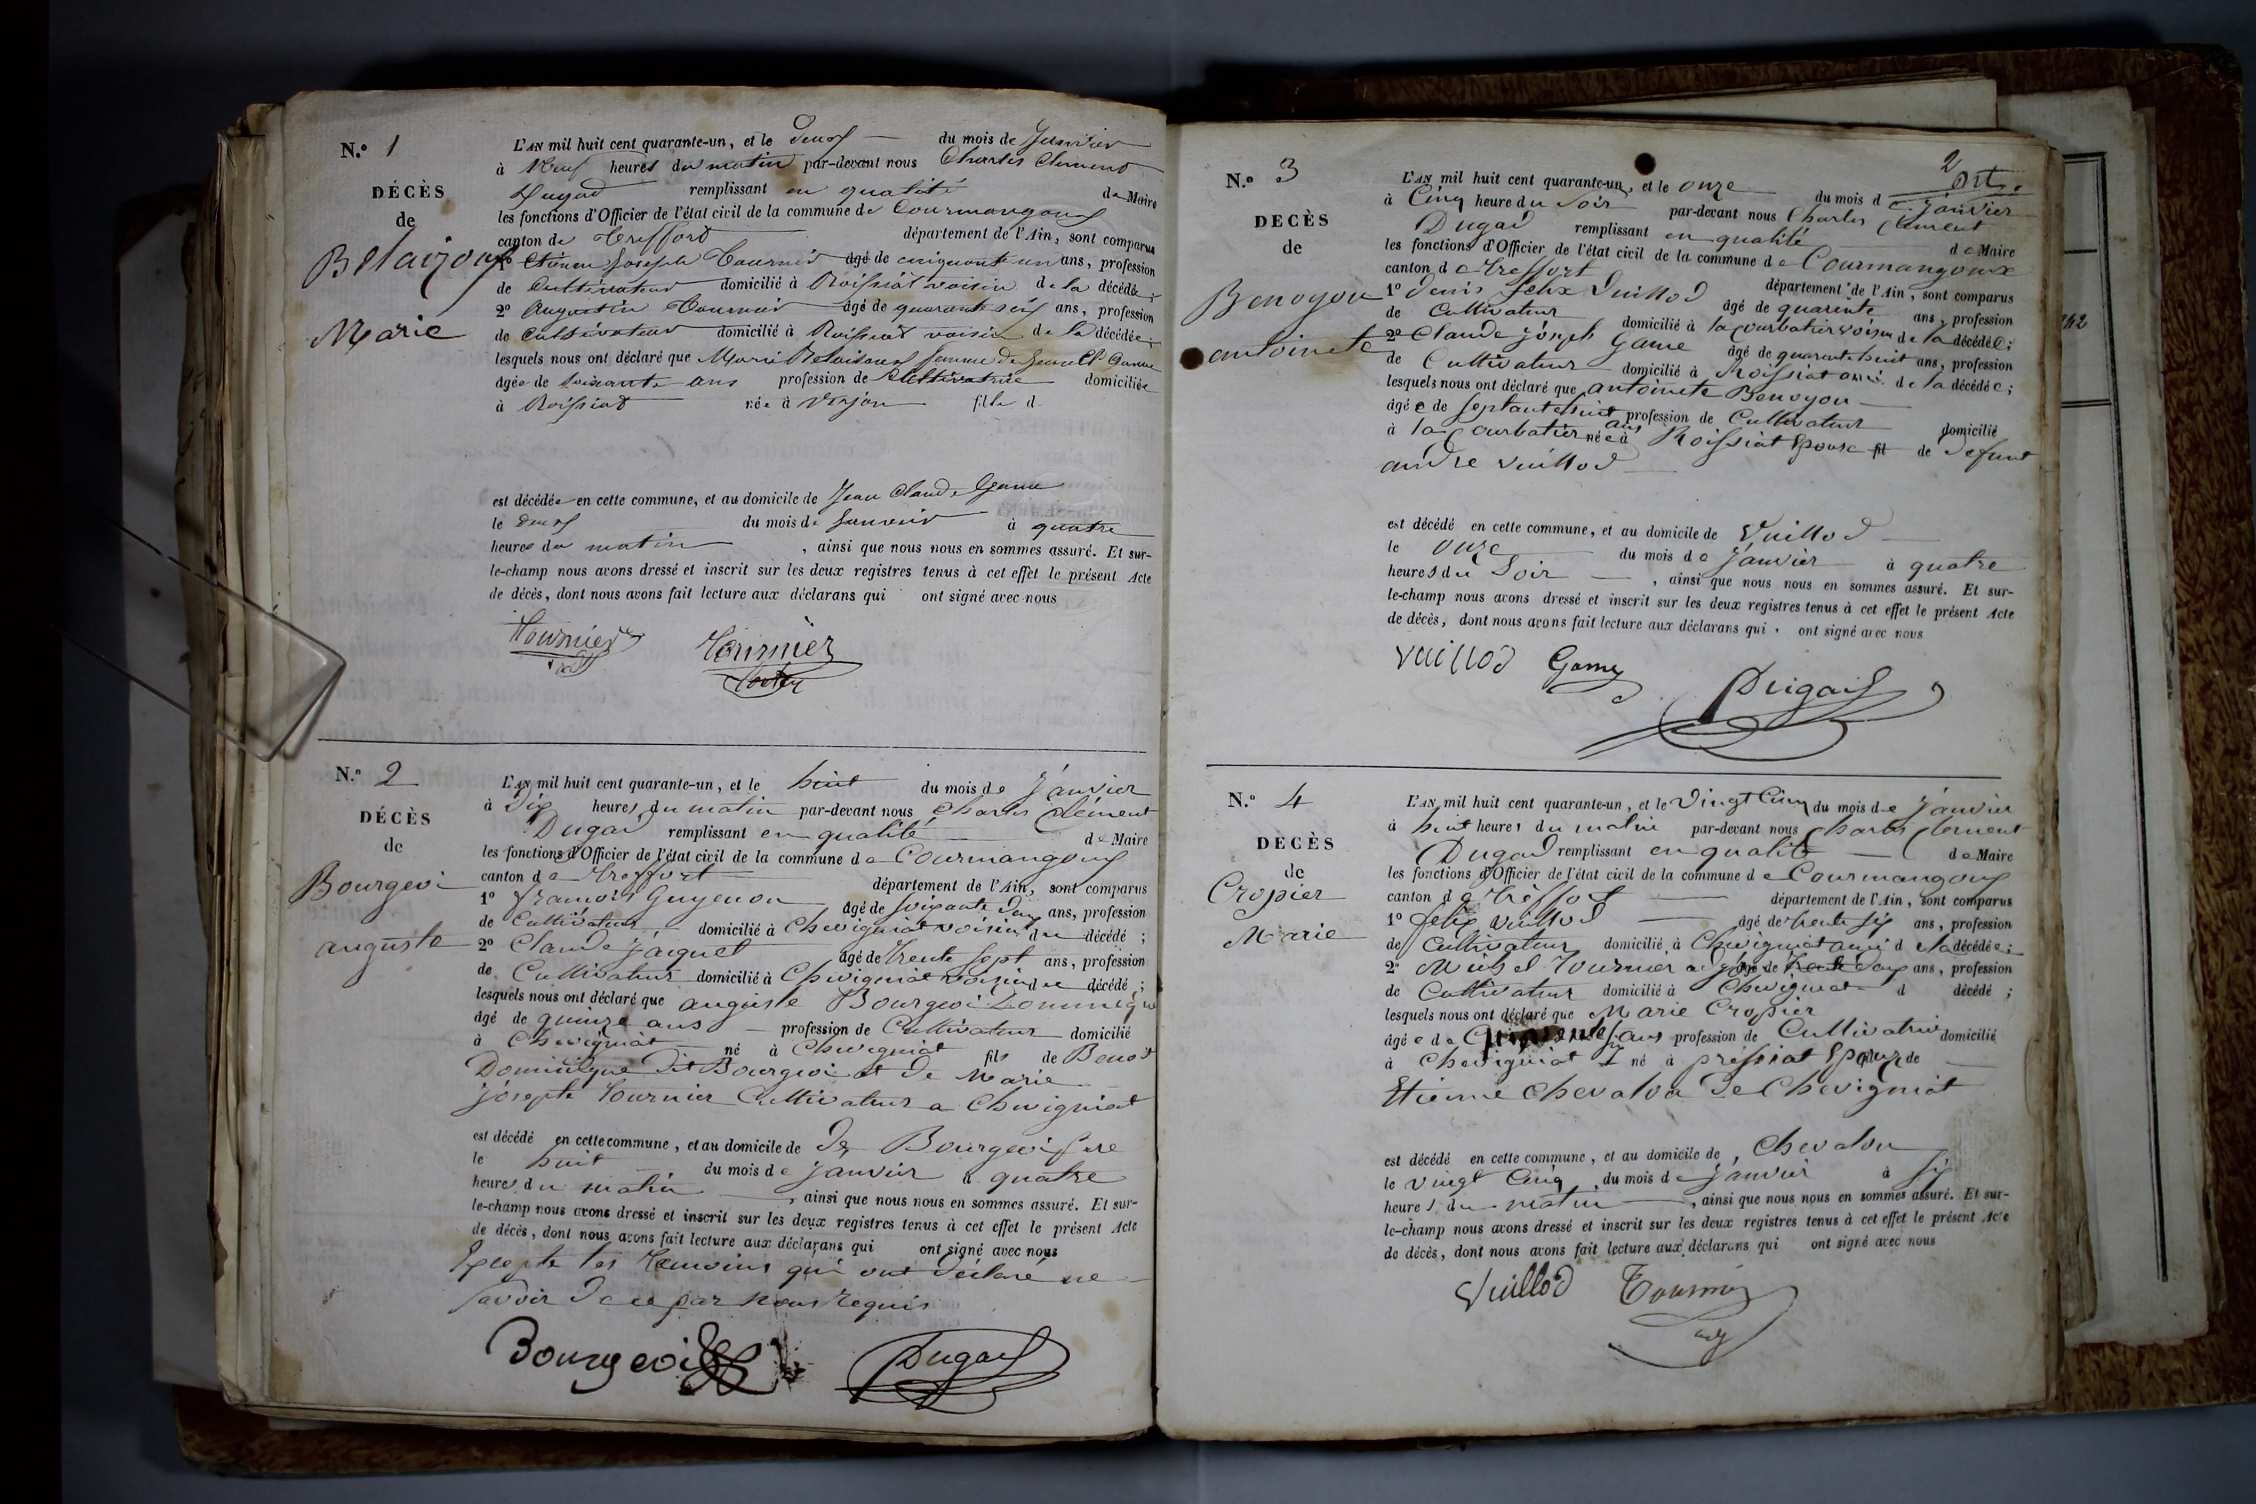 N.º 1
DÉCÈS
de
Marie
L'AN mil huit cent quarante-un, et le deux du mois de Janvier
à Neuf heures du matin par-devant nous Charles Clement
Dugad remplissant en qualité de Maire
les fonctions d'Officier de l'état civil de la commune de Courmangoux
canton de Treffort département de l'Ain, sont comparus
1º Etienne Joseph Tournier âgé de cinquante un ans, profession
de Cultivateur domicilié à Roissiat voisin de la décédée;
2º Augustin Tournier âgé de quarante six ans, profession
de Cultivateur domicilié à Roissiat voisin de la décédée;
lesquels nous ont déclaré que Marie femme de Game
âgée de soixante ans profession de Cultivatrice domiciliée
à Roissiat née à Verjon fille d
est décédée en cette commune, et au domicile de Jean Claude Game
le deux du mois de Janvier à quatre
heures du matin, ainsi que nous nous en sommes assuré. Et sur-
le-champ nous avons dressé et inscrit sur les deux registres tenus à cet effet le présent Acte
de décès, dont nous avons fait lecture aux déclarans qui ont signé avec nous
Tournier Tournier
N.º 2
DÉCÈS
de
Bourgeoi
auguste
L'AN mil huit cent quarante-un, et le huit du mois de Janvier
à Dix heures du matin par-devant nous Charles Clément
Dugad remplissant en qualité de Maire
les fonctions d'Officier de l'état civil de la commune de Courmangoux
canton de Treffort département de l'Ain, sont comparus
1º francois Guyenon âgé de soixante deux ans, profession
de Cultivateur domicilié à Chevigniat voisin du décédé;
2º Claude Jaiquet âgé de trente sept ans, profession
de Cultivateur domicilié à Chevigniat voisin du décédé;
lesquels nous ont déclaré que auguste Bourgeoi Dominique
âgé de quinze ans profession de Cultivateur domicilié
à Chevigniat né à Chevigniat fils de Benoit
Dominique dit Bourgeoi et de Marie
josephte Tournier Cultivateurs a Chevigniat
est décédé en cette commune, et au domicile de De Bourgeoi père
le huit du mois de Janvier à quatre
heures du matin, ainsi que nous nous en sommes assuré. Et sur-
le-champ nous avons dressé et inscrit sur les deux registres tenus à cet effet le présent Acte
de décès, dont nous avons fait lecture aux déclarans qui ont signé avec nous
Excepte les temoins qui ont déclaré ne
savoir de ce par nous requis
Bourgeoi Dugad
2
N.º 3
DÉCÈS
de
Benoyou
antoinete
L'AN mil huit cent quarante-un, et le onze du mois de janvier
à Cinq heure du Soir par-devant nous Charles Clement
Dugad remplissant en qualité de Maire
les fonctions d'Officier de l'état civil de la commune de Courmangoux
canton de Treffort département de l'Ain, sont comparus
1º denis felix Vuillod âgé de quarente ans, profession
de Cultivateur domicilié à la Courbatier voisin de la décédée;
2º Claude joseph Game âgé de quarente huit ans, profession
de Cultivateur domicilié à Roissiat ami de la décédée;
lesquels nous ont déclaré que antoinete Benoyou
âgée de profession de Cultivateur domicilié
à la Courbatier née à Roissiat Epouse fil de defunt
andre Vuillod
est décédé en cette commune, et au domicile de Vuillod
le onze du mois de Janvier à quatre
heures du Soir, ainsi que nous nous en sommes assuré. Et sur-
le-champ nous avons dressé et inscrit sur les deux registres tenus à cet effet le présent Acte
de décès, dont nous avons fait lecture aux déclarans qui ont signé avec nous
Vuillod Game
Dugad
N.º 4
DÉCÈS
de
Cropier
Marie
L'AN mil huit cent quarante-un, et le Vingt Cinq du mois de Janvier
à huit heures du matin par-devant nous Charles Clement
Dugad remplissant en qualité de Maire
les fonctions d'Officier de l'état civil de la commune de Courmangoux
canton de Treffort département de l'Ain, sont comparus
1º felix Vuillod âgé de trente six ans, profession
de Cultivateur domicilié à Chevigniat ami de la décédée;
2º Michel Tournier adjoint âgé de trente deux ans, profession
de Cultivateur domicilié à Chevigniat d décédé;
lesquels nous ont déclaré que Marie Cropier
âgée de ans profession de Cultivatrice domicilié
à Chevigniat né à pressiat Epouse de
Etienne Chevalon de Chevigniat
est décédé en cette commune, et au domicile de Chevalon
le vingt Cinq du mois de Janvier à six
heures du matin, ainsi que nous nous en sommes assuré. Et sur-
le-champ nous avons dressé et inscrit sur les deux registres tenus à cet effet le présent Acte
de décès, dont nous avons fait lecture aux déclarans qui ont signé avec nous
Vuillod Tournier